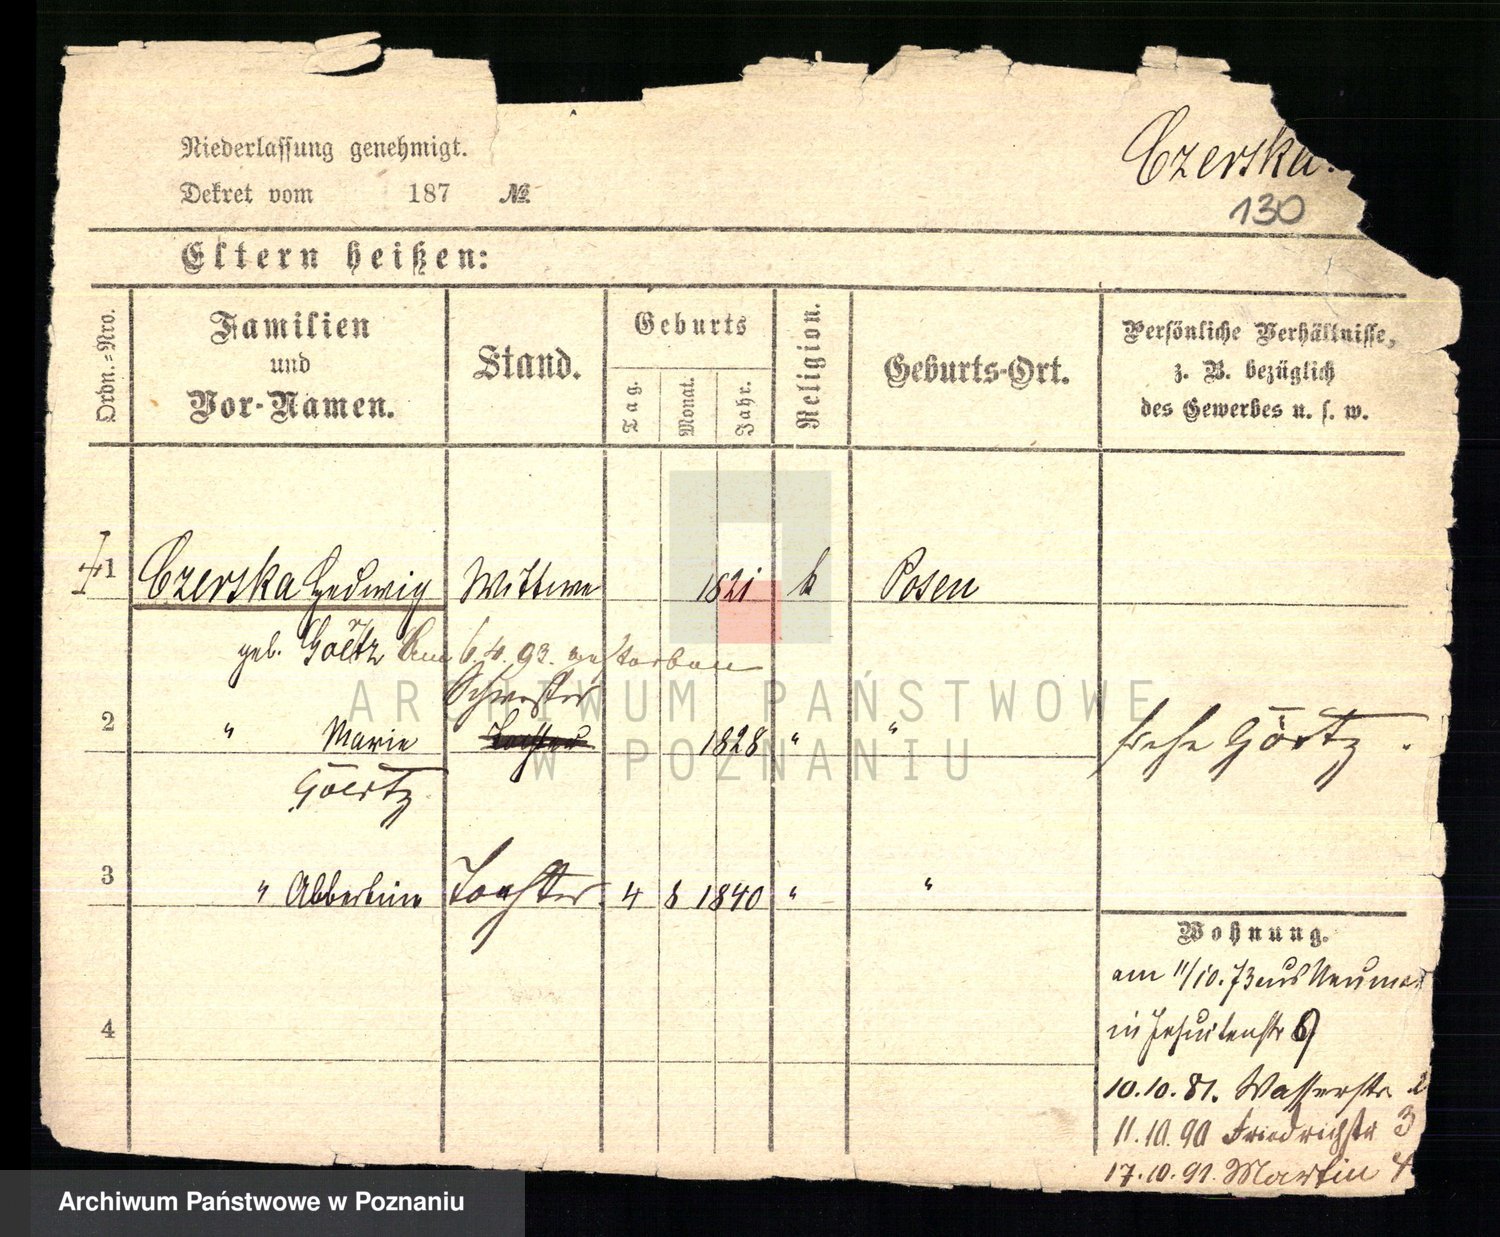 Niederlassung genehmigt.
Dekret vom 187 №
Czerska.
130
Eltern heißen:
Ordn.=Nro.
Familien
und
Vor-Namen.
Stand.
Geburts
Tag.
Monat.
Jahr.
Religion.
Geburts-Ort.
Persönliche Verhältnisse,
z. B. bezüglich
des Gewerbes u. s. w.
1 Czerska Hedwig Wittwe 1821 k Posen
geb. Göetz Am 6.4.93. gestorben
Schwester
2 " Marie Tochter 1828 " " siehe Görtz.
Göertz
3 " Albertine Tochter. 4 8 1840 " "
4
Wohnung.
am 11/10. 73 aus Neumar
in Jesuitenstr 9
10.10.81. Wasserstr. 2
11.10.90 Friedrichstr 3
17.10.91. Martin 4
ARCHIWUM PAŃSTWOWE
W POZNANIU
Archiwum Państwowe w Poznaniu